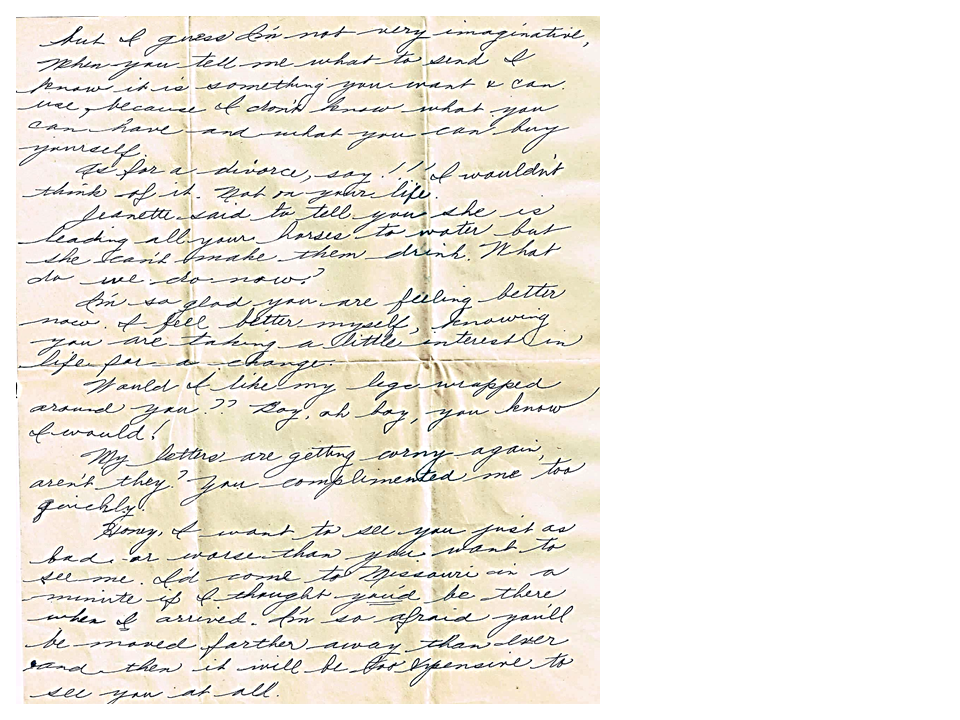 but I guess I'm not very imaginative,
When you tell me what to send I
know it is something you want & can
use, because I don't know what you
can have and what you can buy
yourself.
As for a divorce, say!!! I wouldn't
think of it. Not on your life.
Jeanette said to tell you she is
leading all your horses to water but
she can't make them drink. What
do we do now?
I'm so glad you are feeling better
now. I feel better myself, knowing
you are taking a little interest in
life for a change.
Would I like my legs wrapped
around you?? Boy, oh boy, you know
I would!
My letters are getting corny again,
aren't they? You complimented me too
quickly.
Honey, I want to see you just as
bad or worse than you want to
see me. I'd come to Missouri in a
minute if I thought you'd be there
when I arrived. I'm so afraid you'll
be moved farther away than ever
and then it will be too expensive to
see you at all.